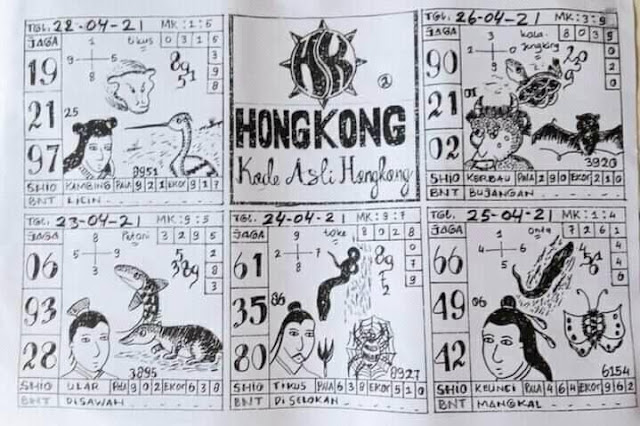 TGL. 22-04-21 MK: 1:5
JAGA 1 tikus 0 3 1 5
19 9 5
8
21 25
97 8951
SHIO KAMBING PALA 9 2 1 EKOR 9 1 7
BNT LICIN
HSK
2
HONGKONG
Kode Asli Hongkong
TGL. 26-04-21 MK: 3:9
JAGA 1 kala jengking 8 0 3 5
90 2 0
9
21 01
02 3920
SHIO KERBAU PALA 2 9 0 EKOR 2 1 0
BNT BUJANGAN
TGL. 23-04-21 MK: 9:5
JAGA 8 Petani 3 2 9 5
06 5 3
9
93
28 3895
SHIO ULAR PALA 9 0 2 EKOR 6 3 8
BNT DISAWAH
TGL. 24-04-21 MK: 9:7
JAGA 9 toke 8 0 2 8
61 2 7
8
35 86
80 8927
SHIO TIKUS PALA 6 3 8 EKOR 5 1 0
BNT DI SELOKAN
TGL. 25-04-21 MK: 1:4
JAGA 5 onta 7 2 6 1
66 4 6
1
49 06
42 6154
SHIO KELINCI PALA 4 6 4 EKOR 9 6 2
BNT MANGKAL